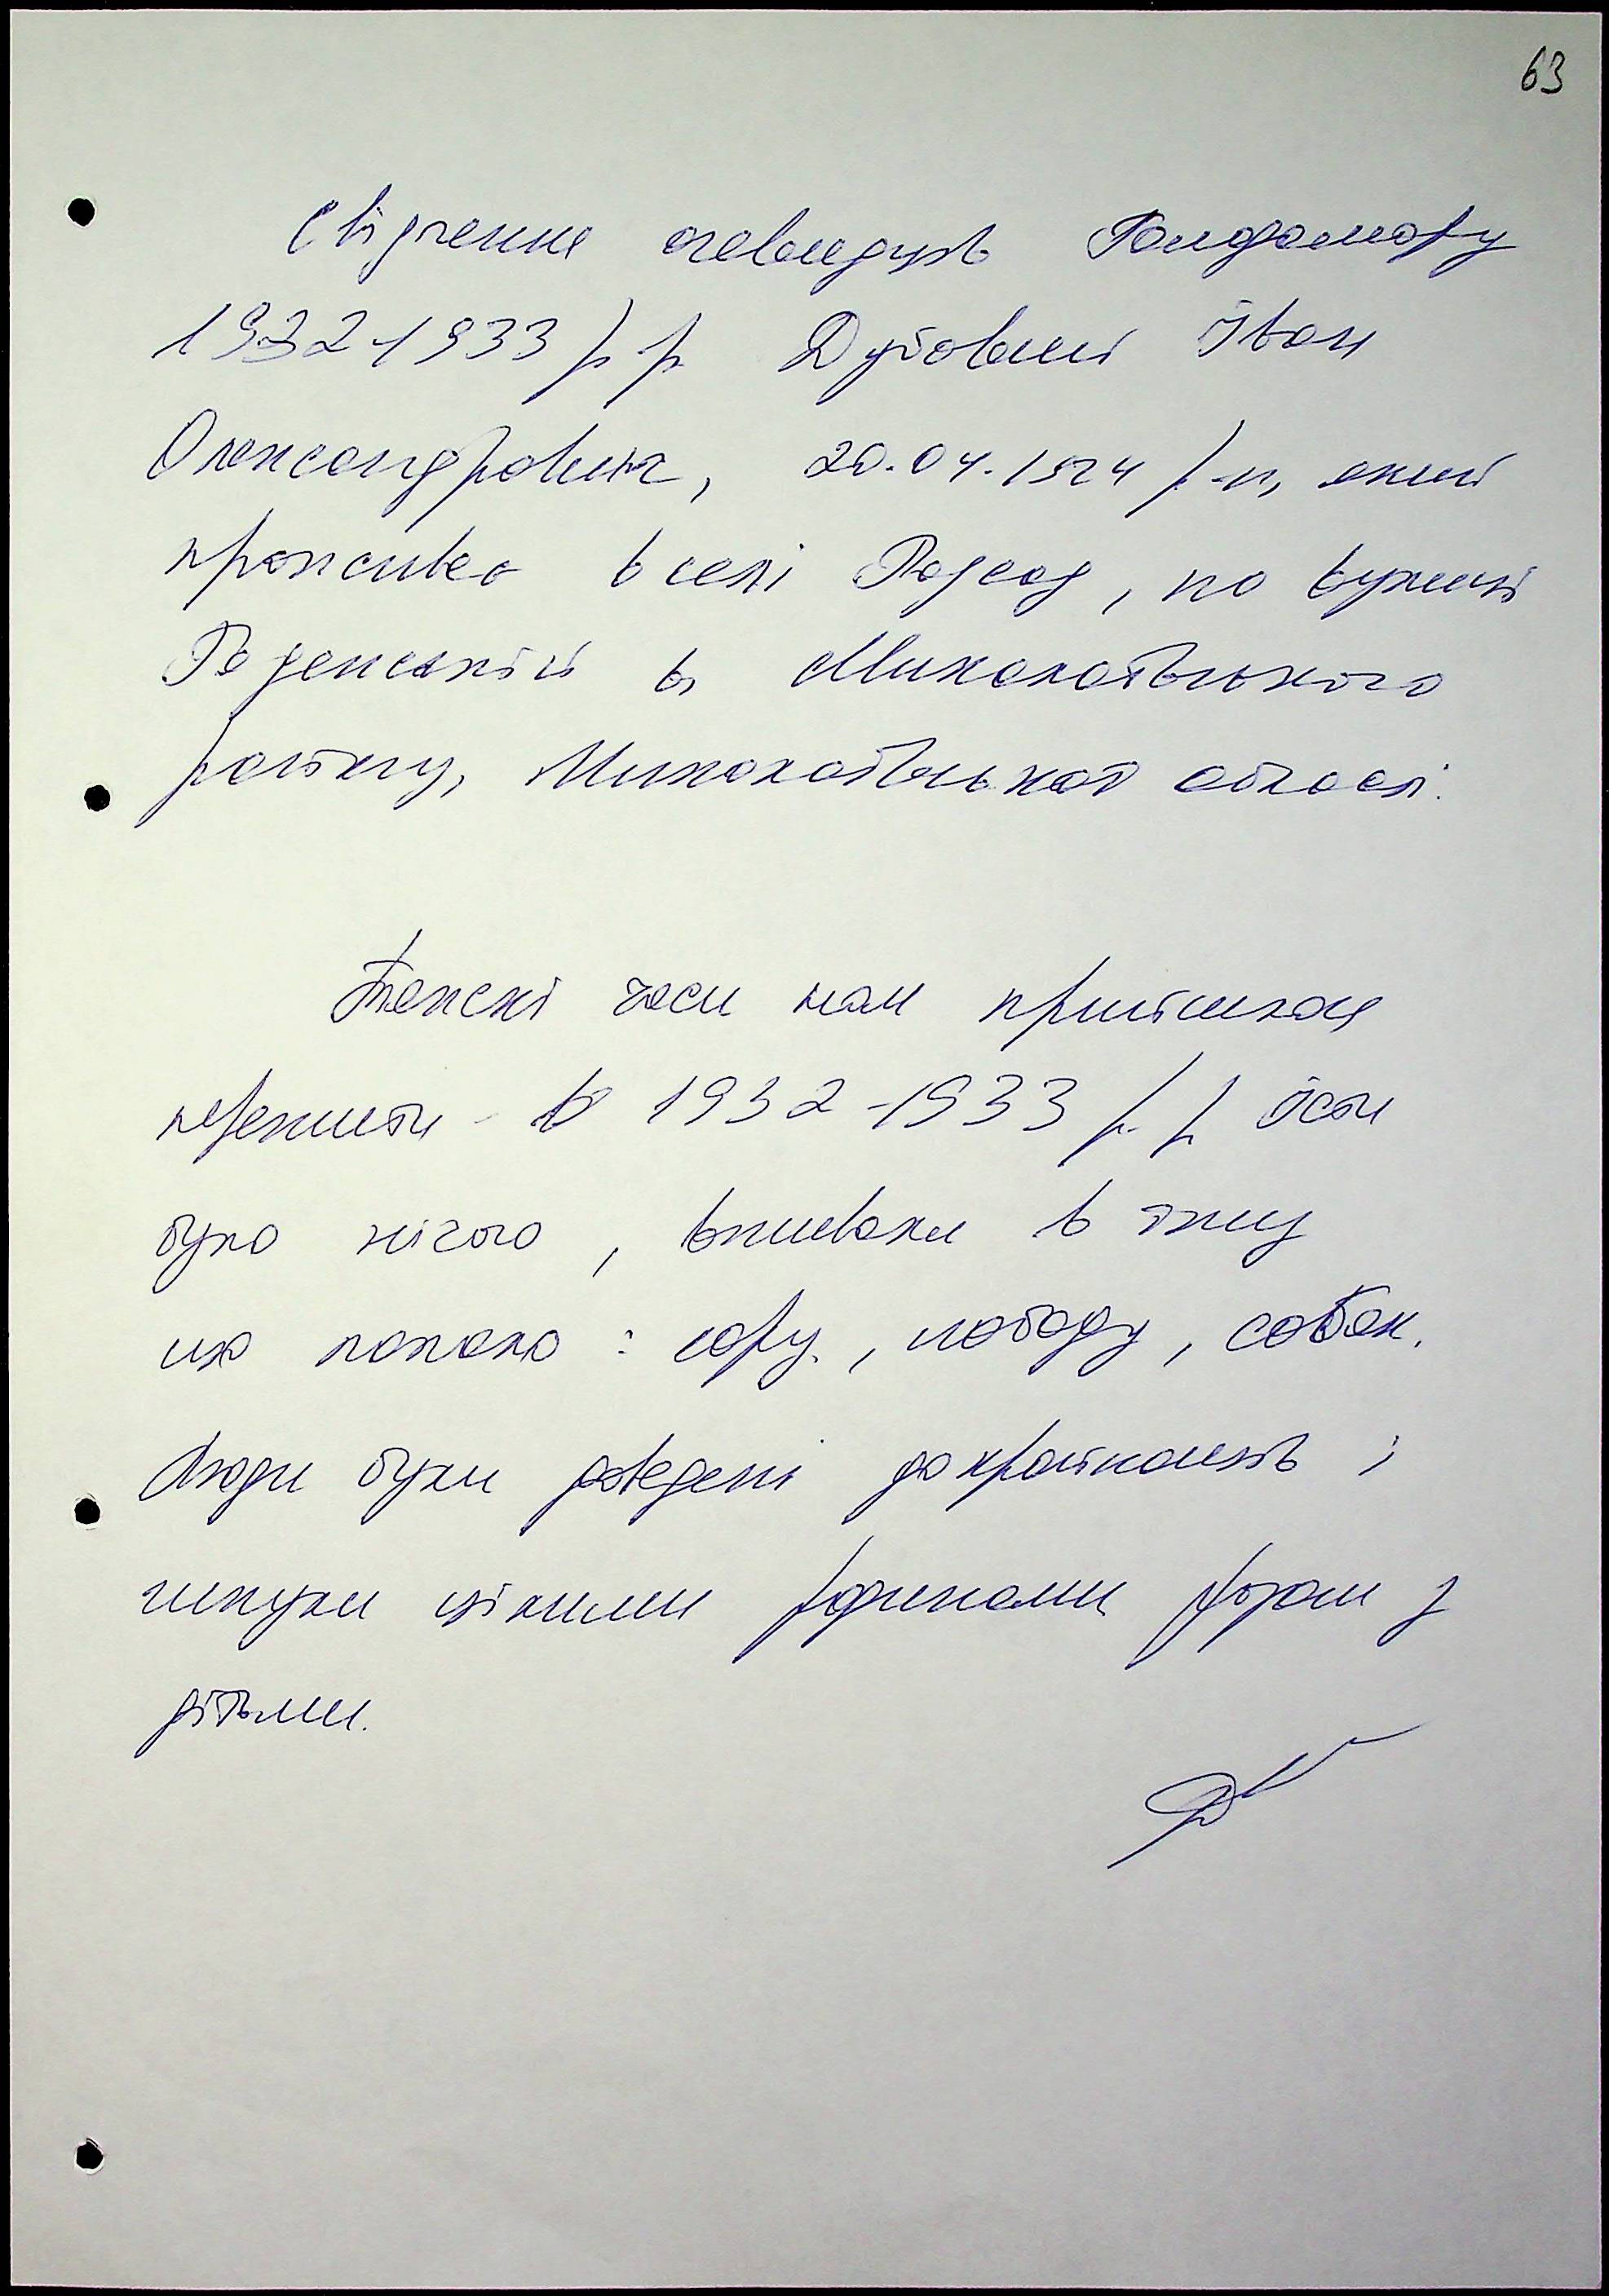 63
Свідчення очевидців Голодомору
1932-1933 р.р. Дубовий Іван
Олександрович, 20.04.1924 р.н, який
проживає в селі Радсад, по вулиці
в Миколаївського
району, Миколаївської області.
Тяжкі часи нам прийшлось
пережити в 1932-1933 р.р їсти
було нічого, вживали в їжу
що попало: кору, лободу, собак.
Люди були доведені до крайнощів і
гинули цілими родинами разом з
дітьми.